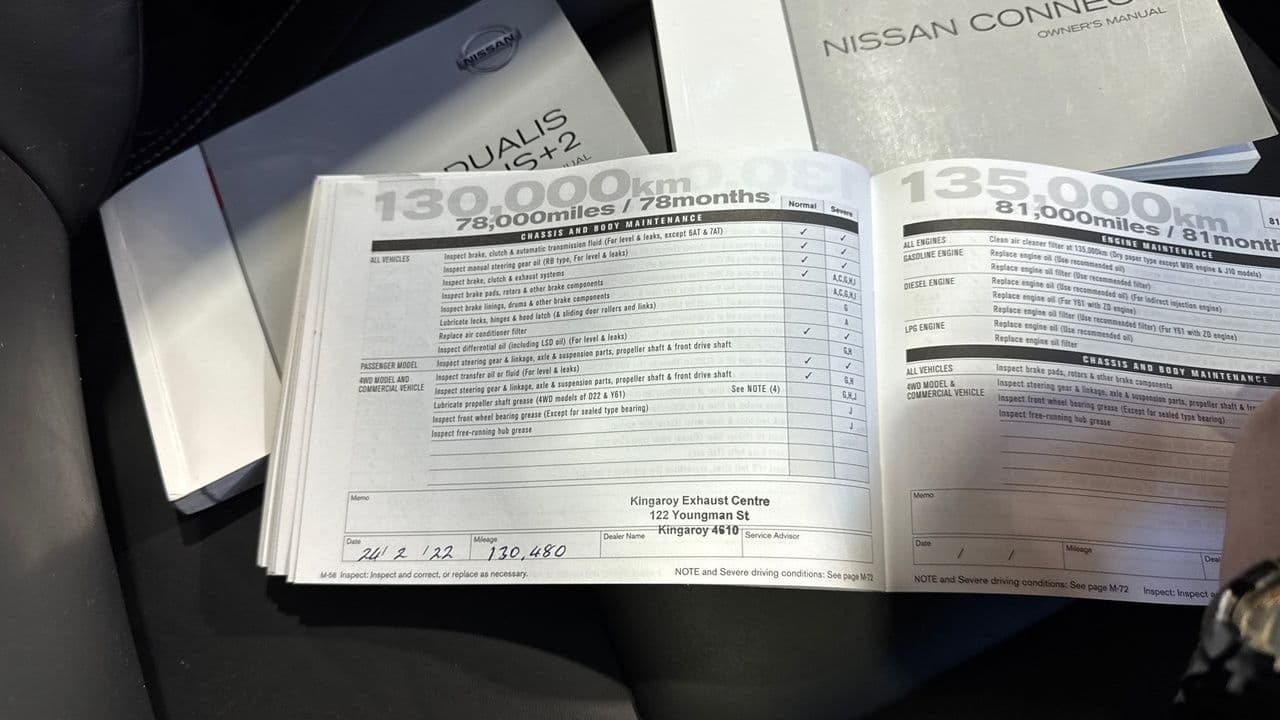 NISSAN
DUALIS
NISSAN CONNEC
OWNER'S MANUAL
130,000km
78,000miles / 78months
Normal Severe
CHASSIS AND BODY MAINTENANCE
ALL VEHICLES
Inspect brake, clutch & automatic transmission fluid (For level & leaks, except 6AT & 7AT) ✓ ✓
Inspect manual steering gear oil (RB type, For level & leaks) ✓ ✓
Inspect brake, clutch & exhaust systems ✓ ✓
Inspect brake pads, rotors & other brake components ✓ A,C,G,H,J
Inspect brake linings, drums & other brake components A,C,G,H,J
Lubricate locks, hinges & hood latch (& sliding door rollers and links) G
Replace air conditioner filter A
Inspect differential oil (including LSD oil) (For level & leaks) ✓ ✓
PASSENGER MODEL Inspect steering gear & linkage, axle & suspension parts, propeller shaft & front drive shaft G,H
4WD MODEL AND COMMERCIAL VEHICLE
Inspect transfer oil or fluid (For level & leaks) ✓ ✓
Inspect steering gear & linkage, axle & suspension parts, propeller shaft & front drive shaft ✓ G,H
Lubricate propeller shaft grease (4WD models of D22 & Y61) See NOTE (4) G,H,J
Inspect front wheel bearing grease (Except for sealed type bearing) J
Inspect free-running hub grease J
Memo
Kingaroy Exhaust Centre
122 Youngman St
Kingaroy 4610
Date 24/ 2 /22 Mileage 130,480 Dealer Name Service Advisor
M-56 Inspect: Inspect and correct, or replace as necessary. NOTE and Severe driving conditions: See page M-72
135,000km
81,000miles / 81month
81
ENGINE MAINTENANCE
ALL ENGINES Clean air cleaner filter at 135,000km (Dry paper type except M9R engine & J10 models)
GASOLINE ENGINE Replace engine oil (Use recommended oil)
Replace engine oil filter (Use recommended filter)
DIESEL ENGINE Replace engine oil (Use recommended oil) (For indirect injection engine)
Replace engine oil (For Y61 with ZD engine)
Replace engine oil filter (Use recommended filter) (For Y61 with ZD engine)
LPG ENGINE Replace engine oil (Use recommended oil)
Replace engine oil filter
CHASSIS AND BODY MAINTENANCE
ALL VEHICLES Inspect brake pads, rotors & other brake components
4WD MODEL & COMMERCIAL VEHICLE
Inspect steering gear & linkage, axle & suspension parts, propeller shaft &
Inspect front wheel bearing grease (Except for sealed type bearing)
Inspect free-running hub grease
Memo
Date / / Mileage
NOTE and Severe driving conditions: See page M-72 Inspect: Inspect